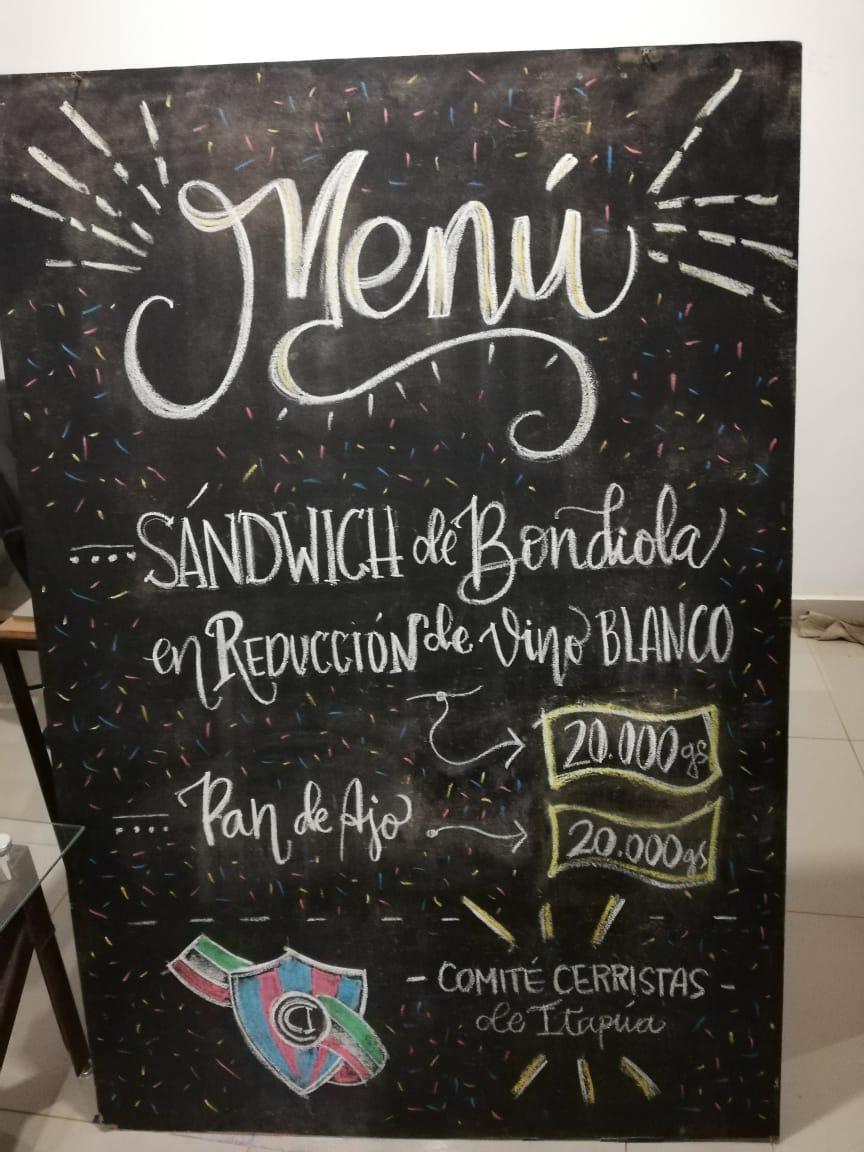 Menú
SÁNDWICH de Bondiola
en REDUCCIÓN de Vino BLANCO
20.000 gs
Pan de Ajo
20.000 gs
CI
- COMITÉ CERRISTAS -
de Itapúa